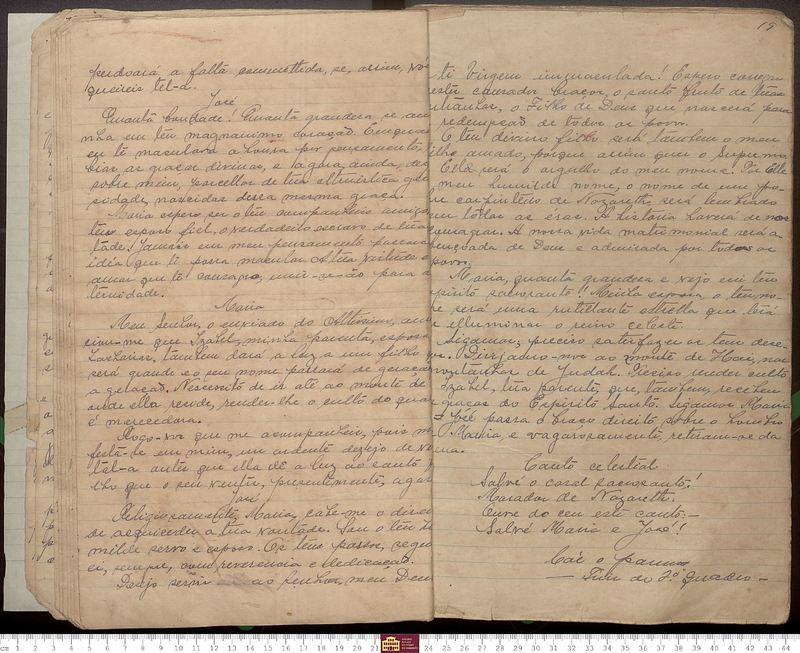 perdoará a falta commettida, se, assim, vo
quereis tel-a.
José
Quanta bondade! Quanta grandeza se an
nha em teu magnanimo coração. Emquan
eu te maculava a honra por pensamento,
as graças divinas, e agora, ainda, de
sobre mim, de tua altruistica ge
sidade, nascidas dessa mesma graça.
Maria espero ser o teu companheiro amigo,
teu esposo fiel, o verdadeiro escravo de tua
tade! Jamais em meu pensamento passará
idéa que te possa macular. A tua virtude e
amor que te consagro, unir-se-ão para a
ternidade.
Maria
Meu Senhor, o enviado do Altissimo, an
ciou-me que Izabel, minha parenta, esposa
Zacharias, tambem dará a luz a um filho
será grande e o seu nome passará de geração
a geração. Necessito de ir até ao monte de
onde ella reside, render-lhe o culto do qual
é merecedora.
Rogo-vos que me acompanheis, pois m
festa-se em mim, um ardente desejo de vi
tal-a antes que ella dê a luz ao santo f
lho que o seu ventre, presentemente, agas
José
Religiosamente, Maria, cabe-me o dever
de acquiescer a tua vontade. Sou o teu hu
milde servo e esposo. Os teus passos, segui
ei, sempre, com reverencia e dedicação.
Desejo servir ao Senhor, meu Deus
19
ti Virgem immaculada! Espero
estes braços, o santo fructo de tuas
entranhas, o Filho de Deus que nascerá para
redempção de todos os povos.
O teu divino filho será tambem o meu
filho amado, porque assim quer o Supremo.
Elle será o orgulho do meu nome. Por Elle
meu humilde nome, o nome de um po-
re carpinteiro de Nazareth, será lembrado
em todas as eras. A historia haverá de nos
consagrar. A nossa vida matrimonial será a-
bençoada de Deus e admirada por todos os
povos.
Maria, quanta grandeza e vejo em teu
espirito sacrosanto! Minha esposa o teu no-
me será uma rutilante estrella que irá
illuminar o reino celeste.
Sigamos, preciso satisfazer os teus dese-
jos. Dirijamo-nos ao monte de Hai, nas
montanhas de Judah. Preciso render culto
Izabel, tua parenta, que, tambem, recebeu
graças do Espirito Santo. Sigamos Maria
= José passa o braço direito sobre o hombro
Maria, e vagarosamente, retiram-se da
cena.
Canto celestial
Salvé o casal sacrosanto!
Morador de Nazareth.
Ouve do ceu este canto:—
Salvé Maria e José!
Cáe o panno
— Fim do 2º Quadro —
cm 1 2 3 4 5 6 7 8 9 10 11 12 13 14 15 16 17 18 19 20 21 24 25 26 27 28 29 30 31 32 33 34 35 36 37 38 39 40 41 42 43 44